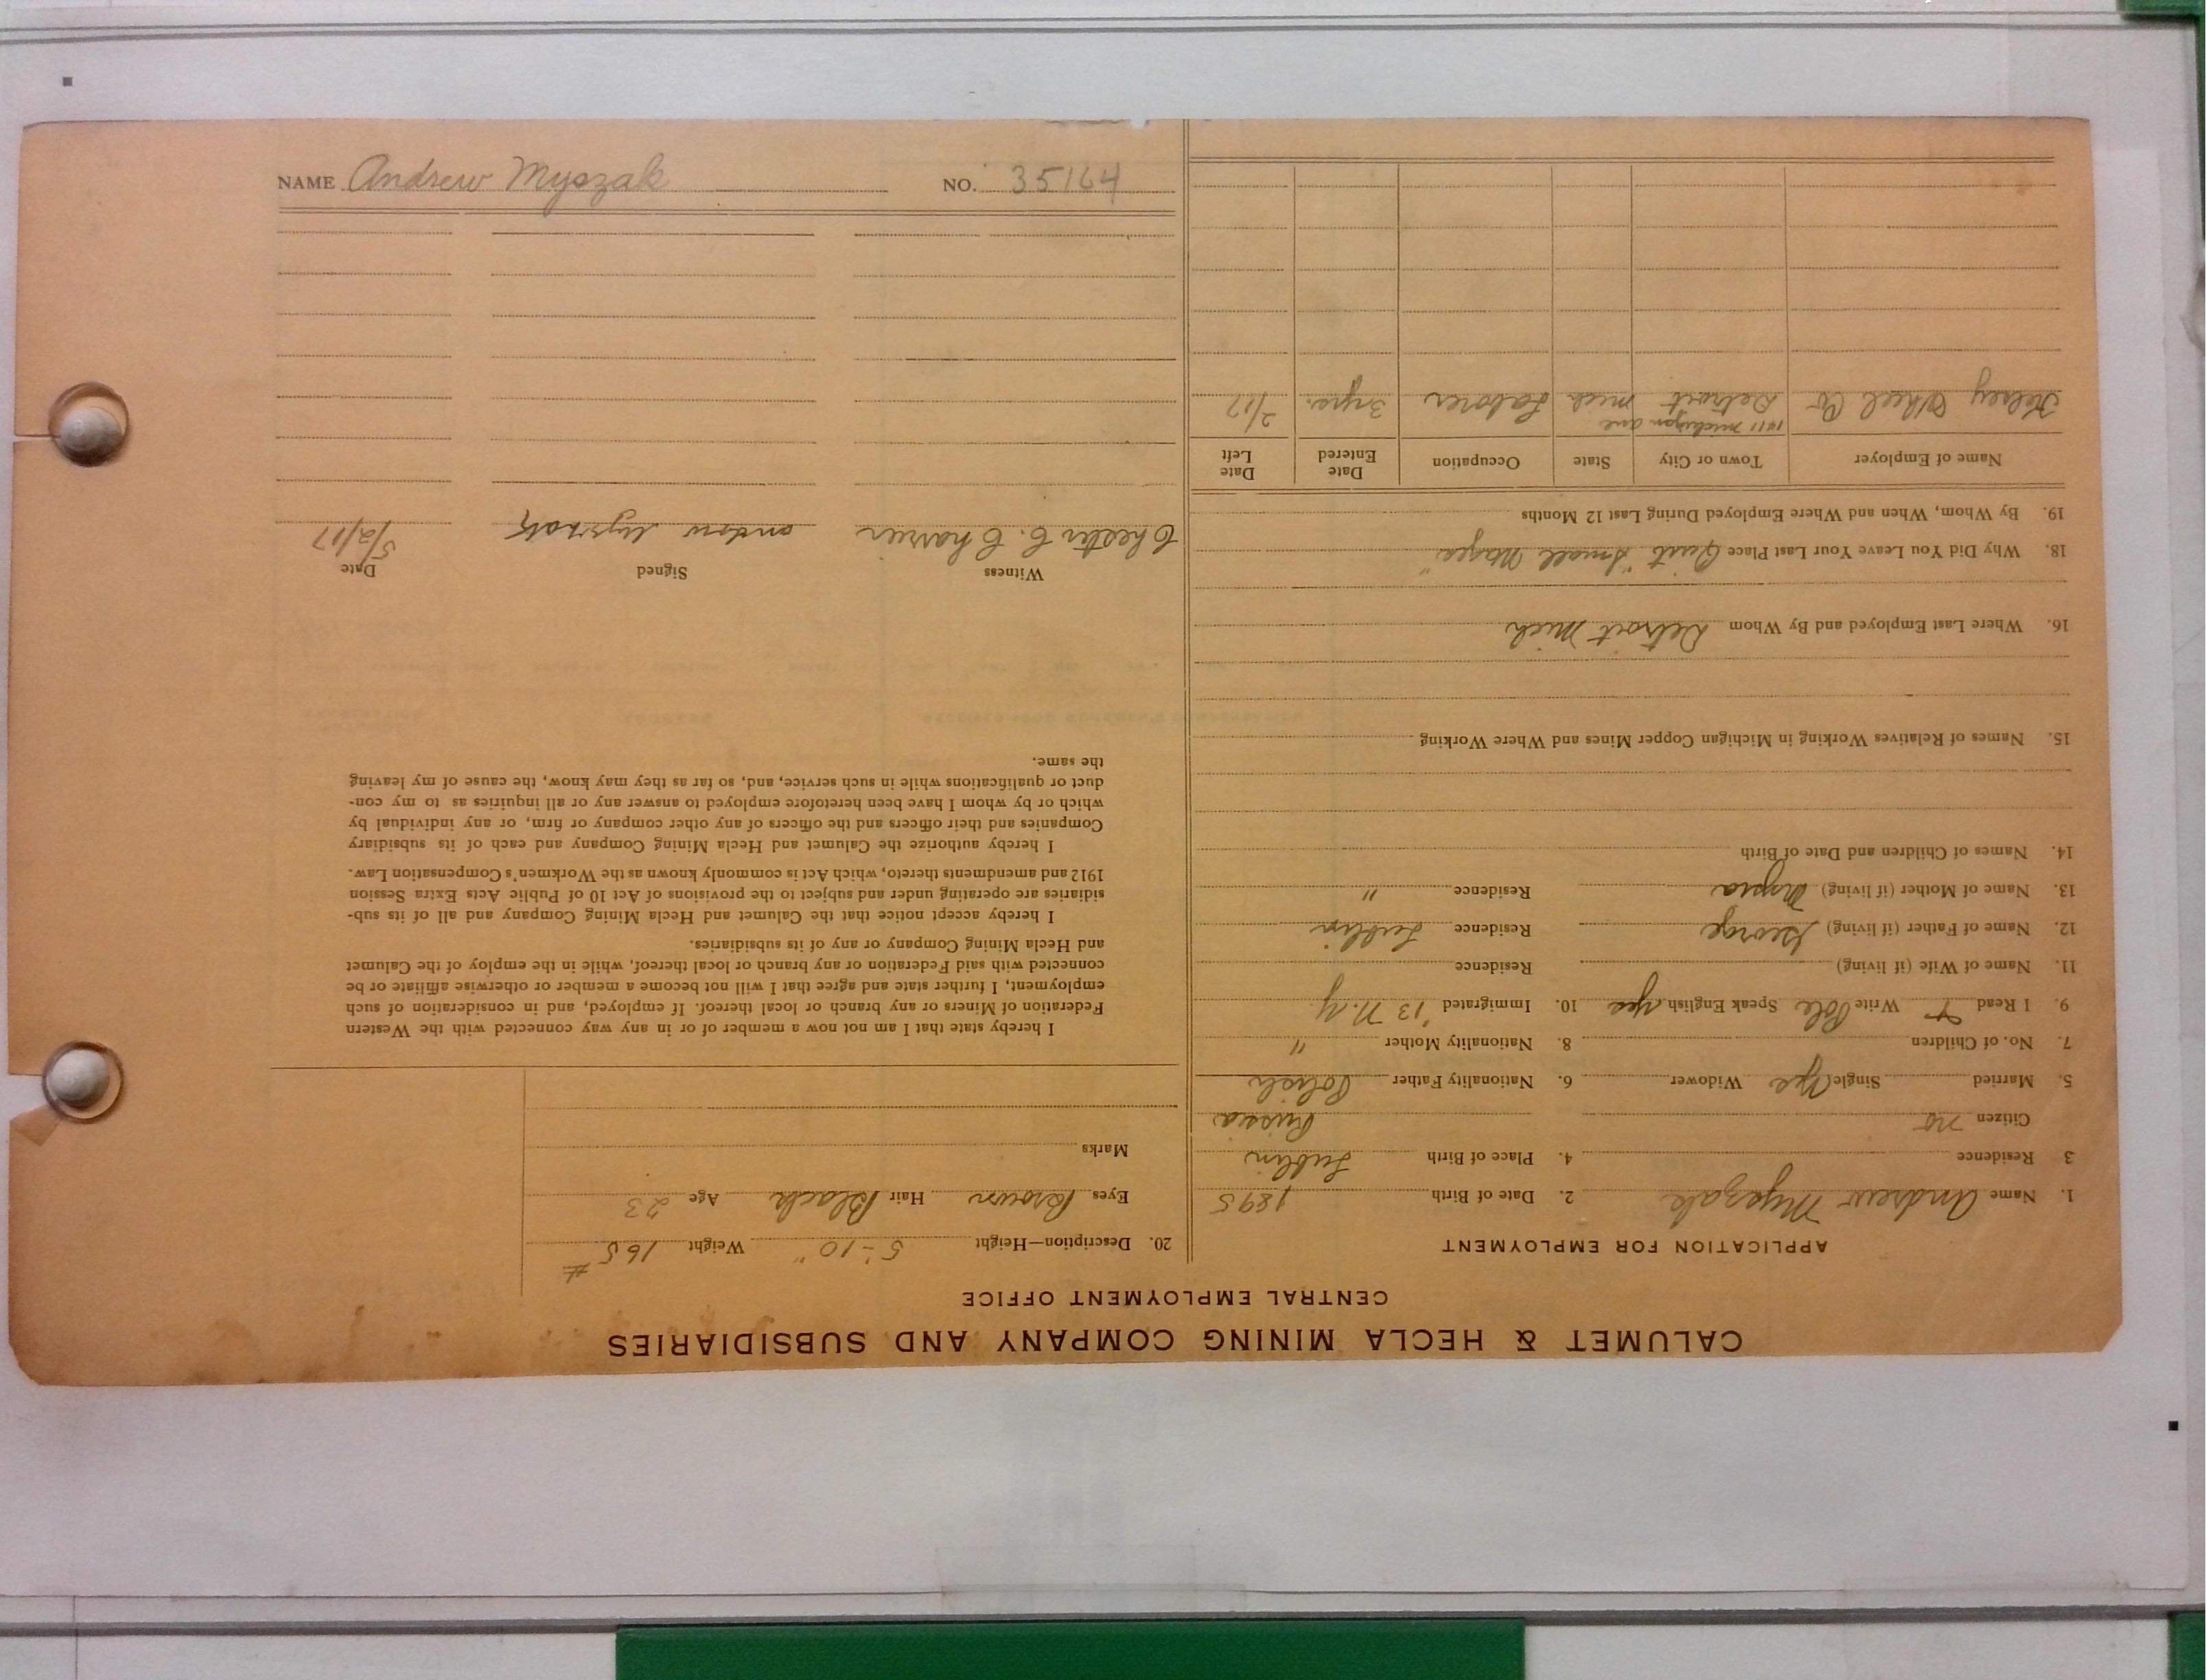 CALUMET & HECLA MINING COMPANY AND SUBSIDIARIES
CENTRAL EMPLOYMENT OFFICE
APPLICATION FOR EMPLOYMENT
1. Name Andrew Myszak 2. Date of Birth 1895
3 Residence 4. Place of Birth Lublin
Citizen no Russia
5. Married Single Yes Widower 6. Nationality Father Polish
7. No. of Children 8. Nationality Mother "
9. I Read Write Pole Speak English Yes 10. Immigrated '13 N.Y
11. Name of Wife (if living) Residence
12. Name of Father (if living) George Residence Lublin
13. Name of Mother (if living) Residence "
14. Names of Children and Date of Birth
15. Names of Relatives Working in Michigan Copper Mines and Where Working
16. Where Last Employed and By Whom Detroit Mich
18. Why Did You Leave Your Last Place Quit "Small Wages"
19. By Whom, When and Where Employed During Last 12 Months
Name of Employer Town or City State Occupation Date Entered Date Left
1411 Michigan ave
Kelsey Wheel Co Detroit Mich Laborer 3 yrs. 2/17
20. Description—Height 5'-10" Weight 165 #
Eyes Brown Hair Black Age 23
Marks
I hereby state that I am not now a member of or in any way connected with the Western
Federation of Miners or any branch or local thereof. If employed, and in consideration of such
employment, I further state and agree that I will not become a member or otherwise affiliate or be
connected with said Federation or any branch or local thereof, while in the employ of the Calumet
and Hecla Mining Company or any of its subsidiaries.
I hereby accept notice that the Calumet and Hecla Mining Company and all of its sub-
sidiaries are operating under and subject to the provisions of Act 10 of Public Acts Extra Session
1912 and amendments thereto, which Act is commonly known as the Workmen's Compensation Law.
I hereby authorize the Calumet and Hecla Mining Company and each of its subsidiary
Companies and their officers and the officers of any other company or firm, or any individual by
which or by whom I have been heretofore employed to answer any or all inquiries as to my con-
duct or qualifications while in such service, and, so far as they may know, the cause of my leaving
the same.
Witness Signed Date
Chester C. Charrier 5/2/17
NAME Andrew Myszak NO. 35164